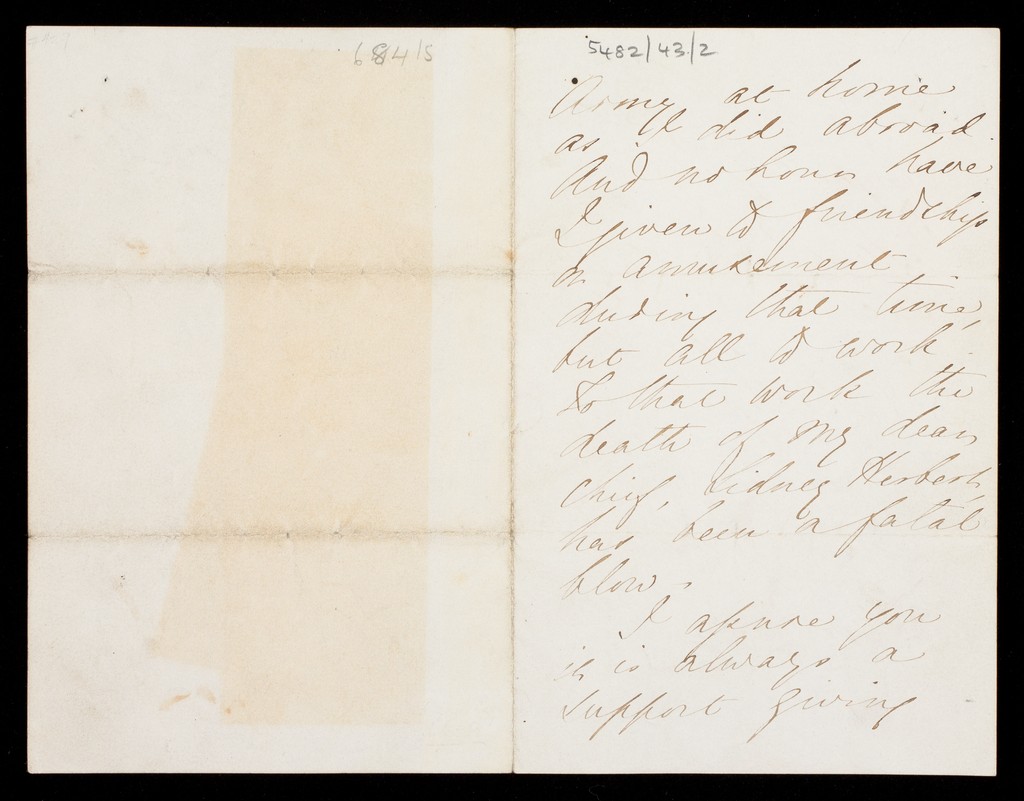 684/5
5482/43/2
Army at home
as I did abroad.
And no hour have
I given to friendship
or amusement
during that time,
but all to work.
To that work the
death of my dear
chief, Sidney Herbert,
has been a fatal
blow.
I assure you
it is always a
support giving